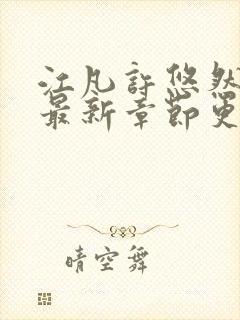 江凡許悠然
最新章節更
晴空舞